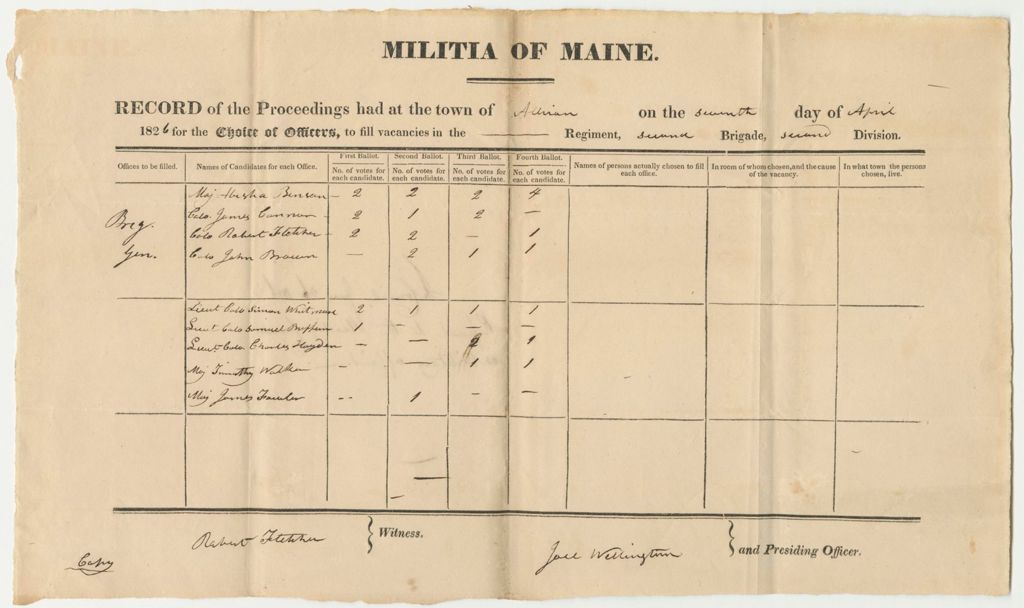 MILITIA OF MAINE.
RECORD of the Proceedings had at the town of Albion on the seventh day of April
1826 for the Choice of Officers, to fill vacancies in the ——— Regiment, second Brigade, second Division.
Offices to be filled. Names of Candidates for each Office. First Ballot. No. of votes for each candidate. Second Ballot. No. of votes for each candidate. Third Ballot. No. of votes for each candidate. Fourth Ballot. No. of votes for each candidate. Names of persons actually chosen to fill each office. In room of whom chosen, and the cause of the vacancy. In what town the persons chosen, live.
Brig. Gen.
Maj Benson – 2 2 2 4
Colo. James Connor – 2 1 2 —
Colo Robert Fletcher – 2 2 — 1
Colo John Brown — 2 1 1
Lieut Colo Simon Whitmore 2 1 1 1
Lieut Colo Samuel 1 – — —
Lieut. Colo. Charles Hayden – — 2 1
Maj Timothy Walker – — 1 1
Maj James Fowler -- 1 – –
Robert Fletcher } Witness.
Joel Wellington } and Presiding Officer.
Copy